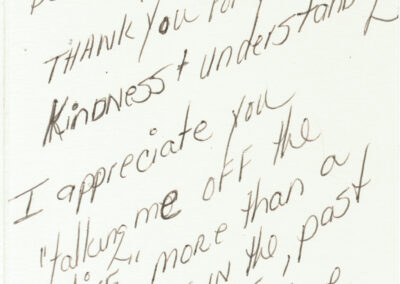 THANK YOU for
KINDNESS + understand
I appreciate you
"talking me off the
more than a
in the past